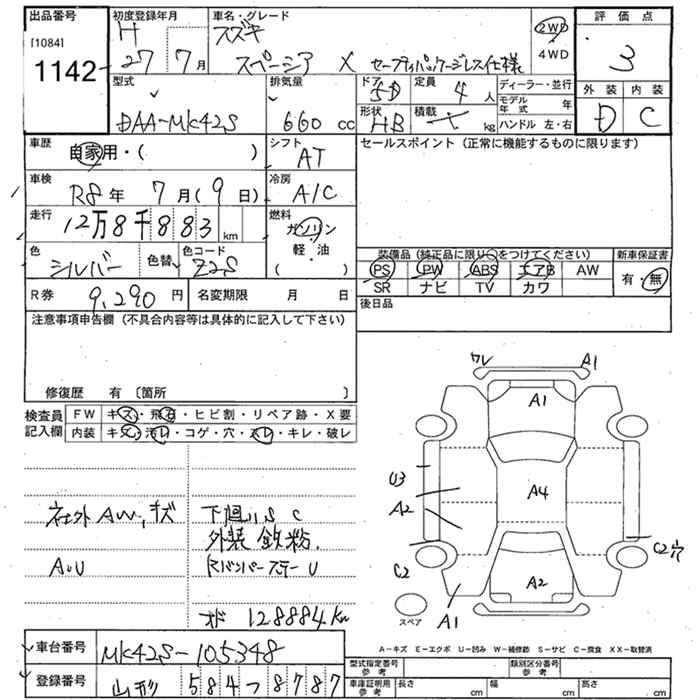 出品番号
[1084]
1142-
初度登録年月
H
27 7月
車名・グレード
スズキ
スペーシア X セーフティパッケージレス仕様
2WD
4WD
評価点
3
外装 内装
D C
型式
DAA-MK42S
排気量
660 cc
ドア 5D
定員 4人
形状 HB
積載 kg
ディーラー・並行
モデル年式 年
ハンドル 左・右
車歴
自家用・( )
シフト
AT
セールスポイント（正常に機能するものに限ります）
車検
R8年 7月(9日)
冷房
A/C
走行
12万8千883 km
燃料
ガソリン
軽・油
( )
色
シルバー
色替
色コード
Z2S
装備品（純正品に限り○をつけてください）
新車保証書
PS PW ABS エアB AW
SR ナビ TV カワ
有・無
R券 9,290円
名変期限 月 日
後日品
注意事項申告欄（不具合内容等は具体的に記入して下さい）
修復歴 有〔箇所 〕
検査員
記入欄
FW キズ・飛石・ヒビ割・リペア跡・X要
内装 キズ・汚レ・コゲ・穴・スレ・キレ・破レ
社外AW,キズ
下廻りS C
外装 鉄粉.
AU
Rバンパーステー U
オド 128884km
ワレ
A1
A1
U3
A2
A4
C2
C2穴
A2
A1
スペア
A-キズ E-エクボ U-凹み W-補修跡 S-サビ C-腐食 XX-取替済
車台番号 MK42S-105348
登録番号 山形 584 8787
型式指定番号
参考
類別区分番号
参考
車庫証明用
参考
長さ cm
幅 cm
高さ cm